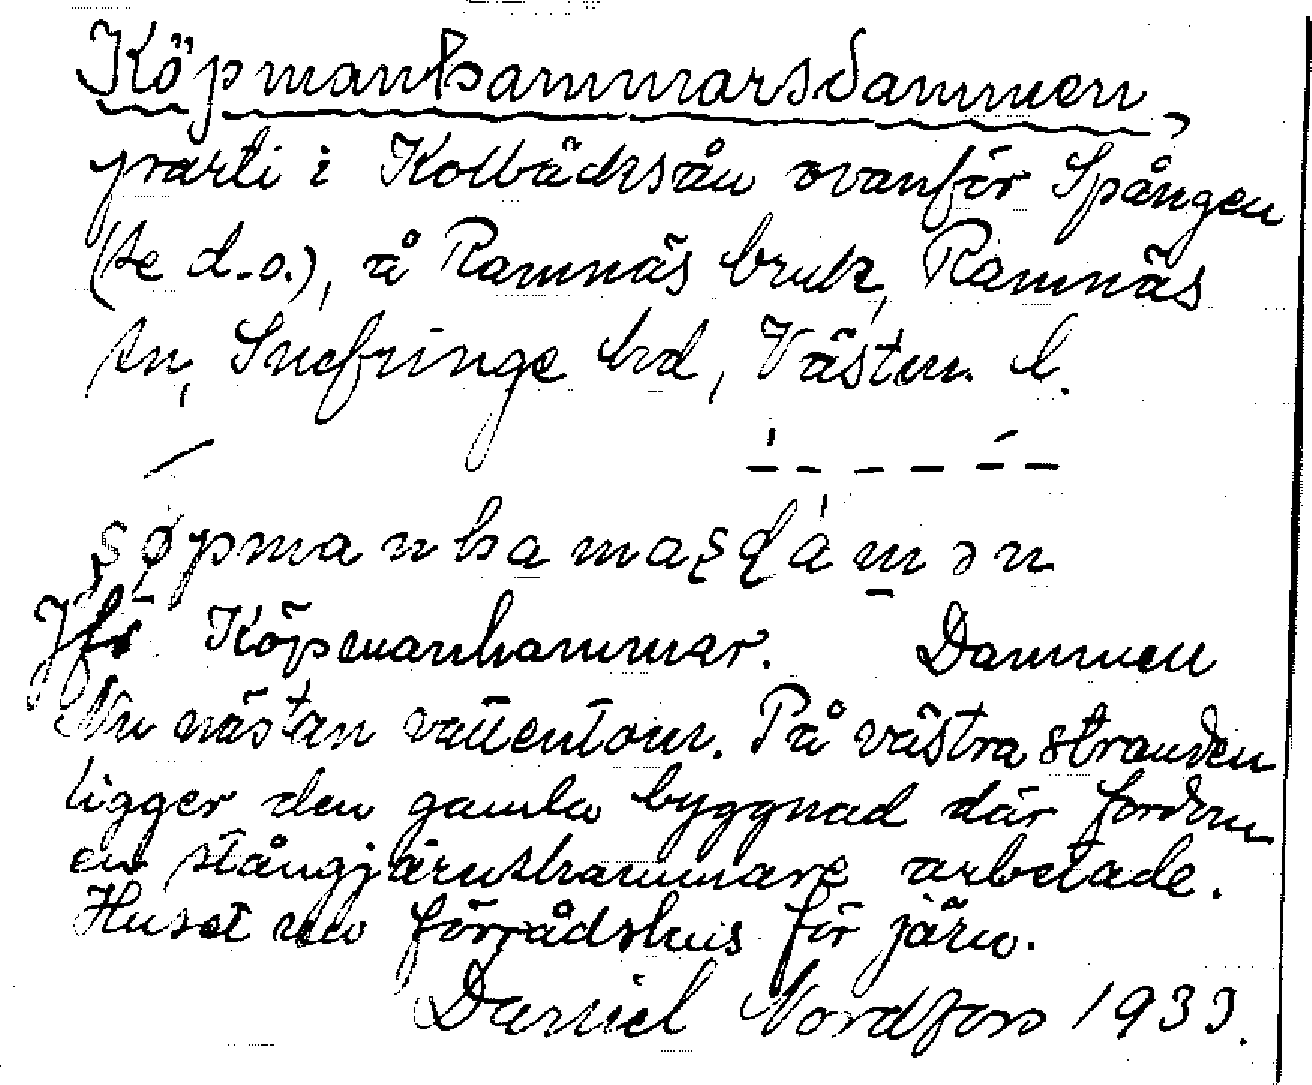 Köpmanhammarsdammen,
parti i Kolbäcksån ovanför Spången
(se d.o.), å Ramnäs bruk, Ramnäs
sn, Snefringe hd, Västm. l.
Jfr Köpmanhammar. Dammen
Nu nästan vattentom. På västra stranden
ligger den gamla byggnad där fordom
en stångjärnshammare arbetade.
Huset nu förrådshus för järn.
Daniel Nordfors 1933.